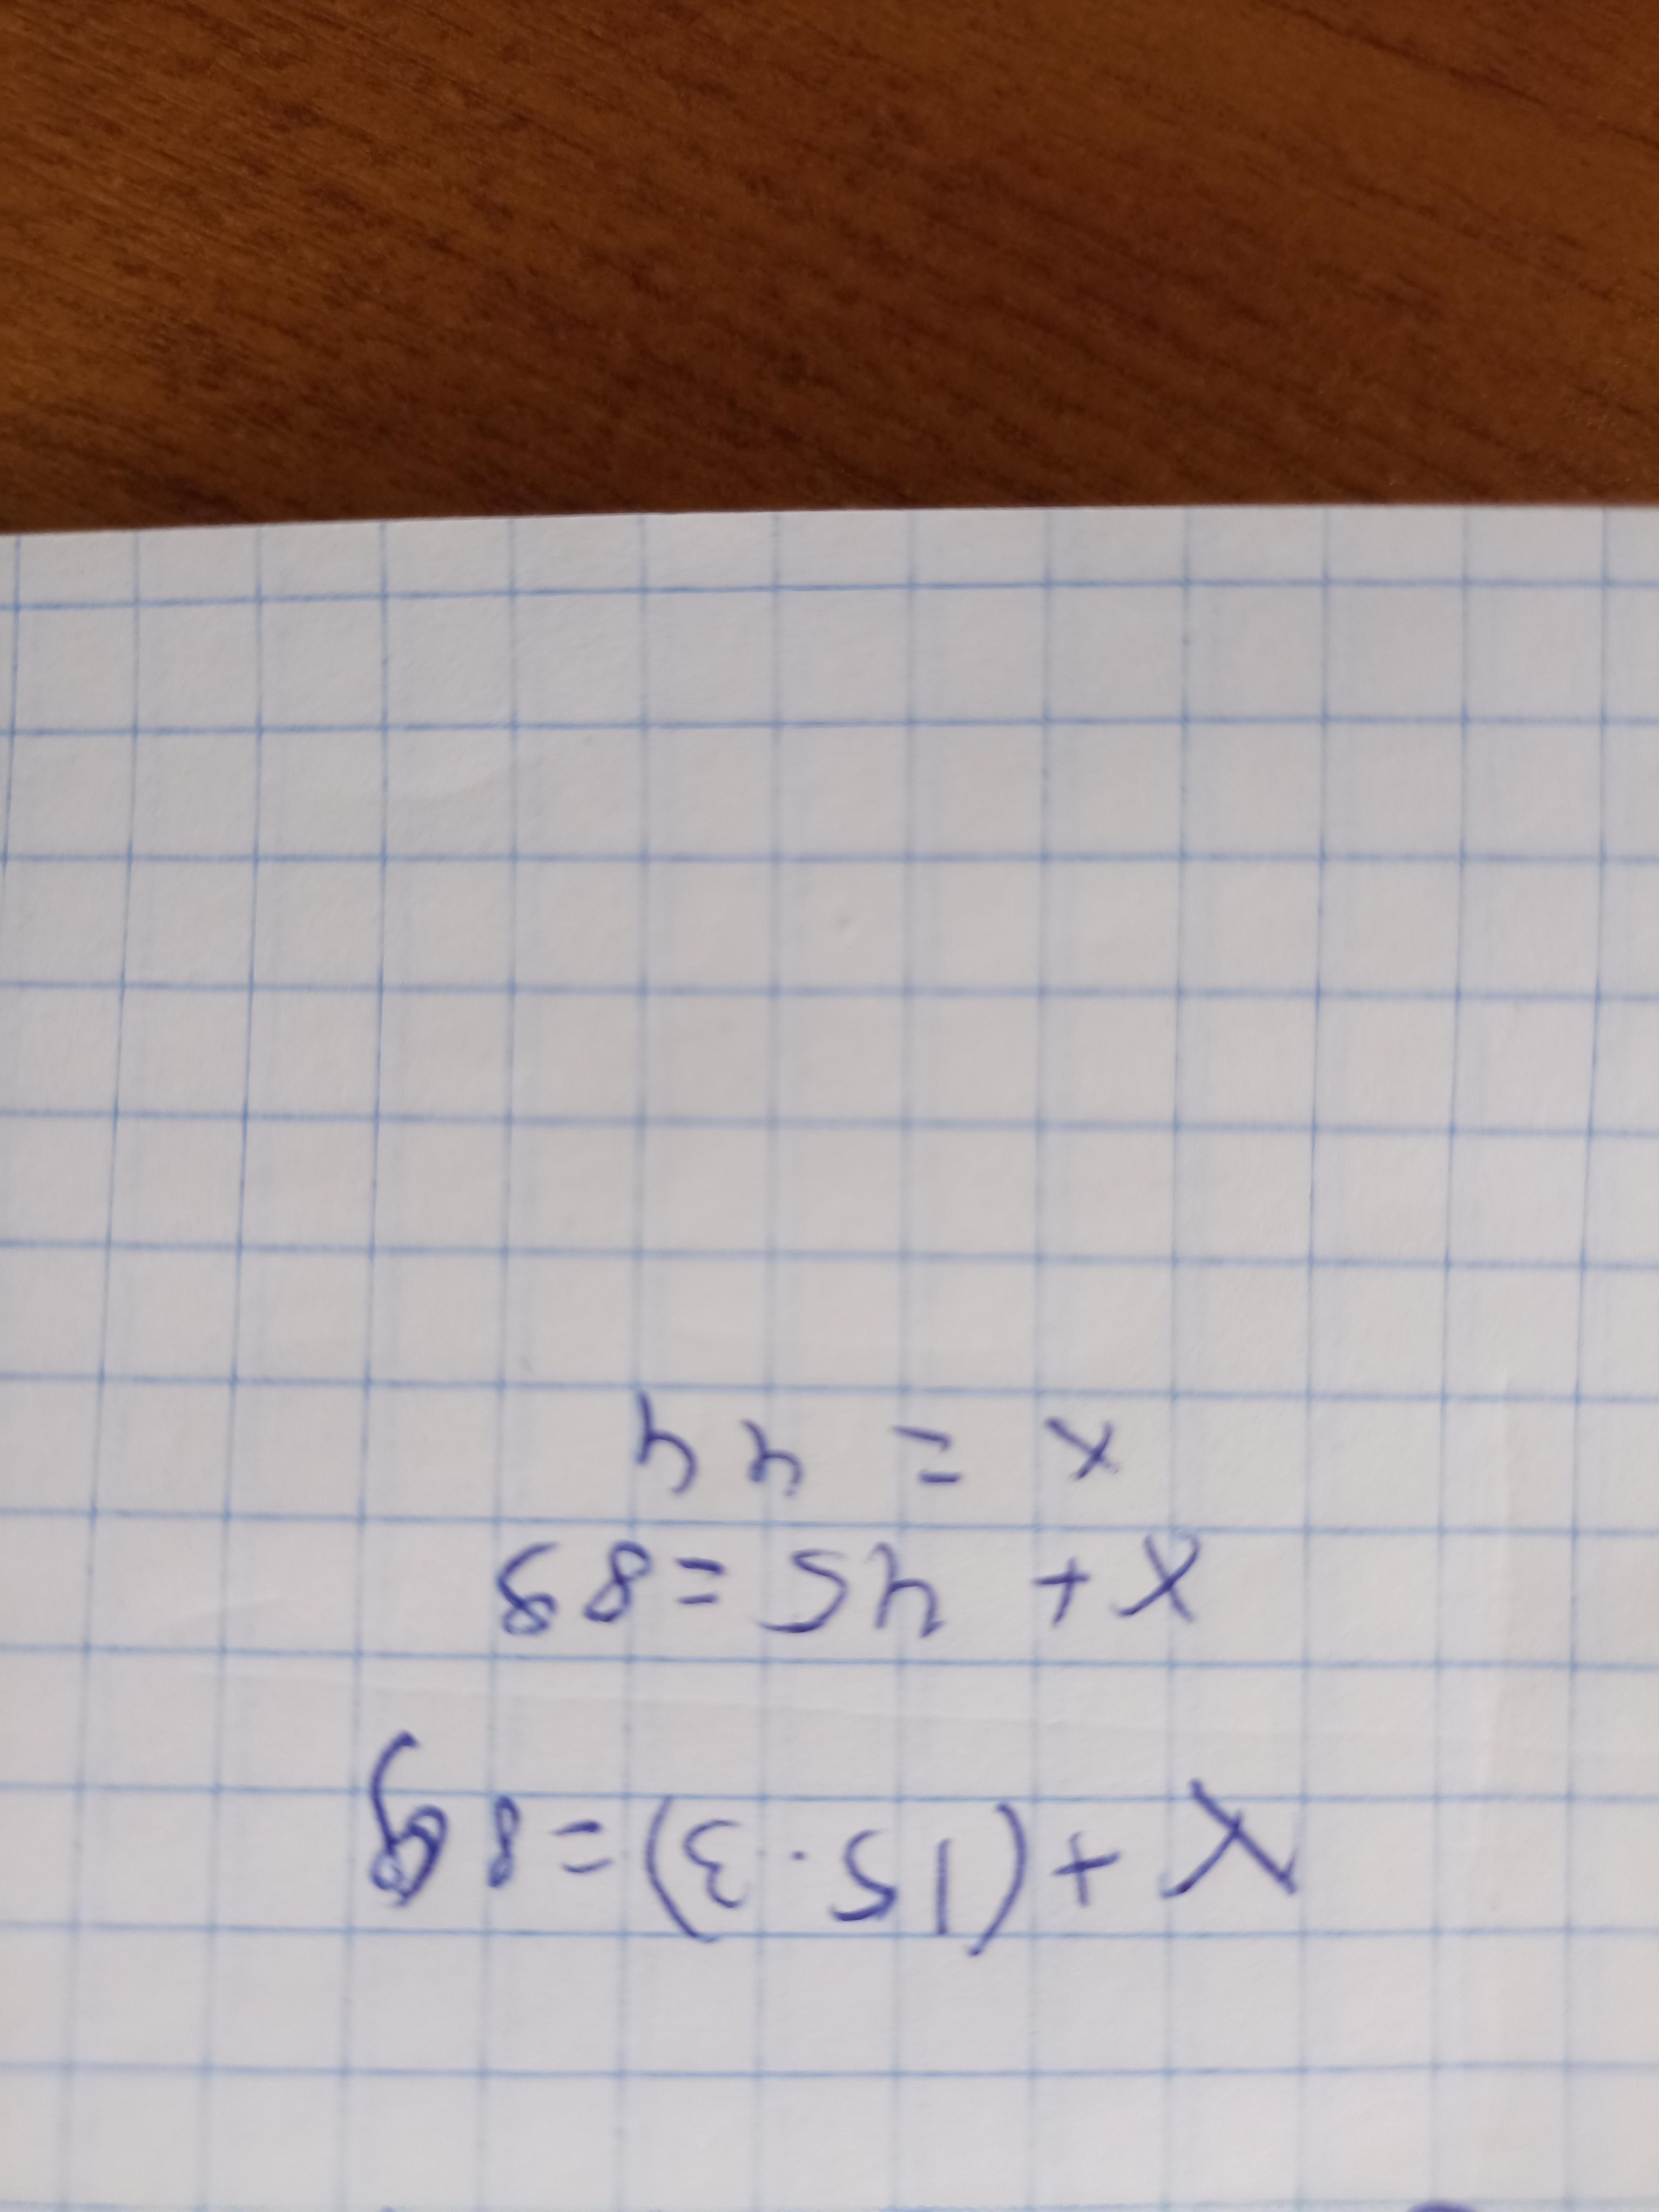 x + (15 · 3) = 89
x + 45 = 89
x = 44